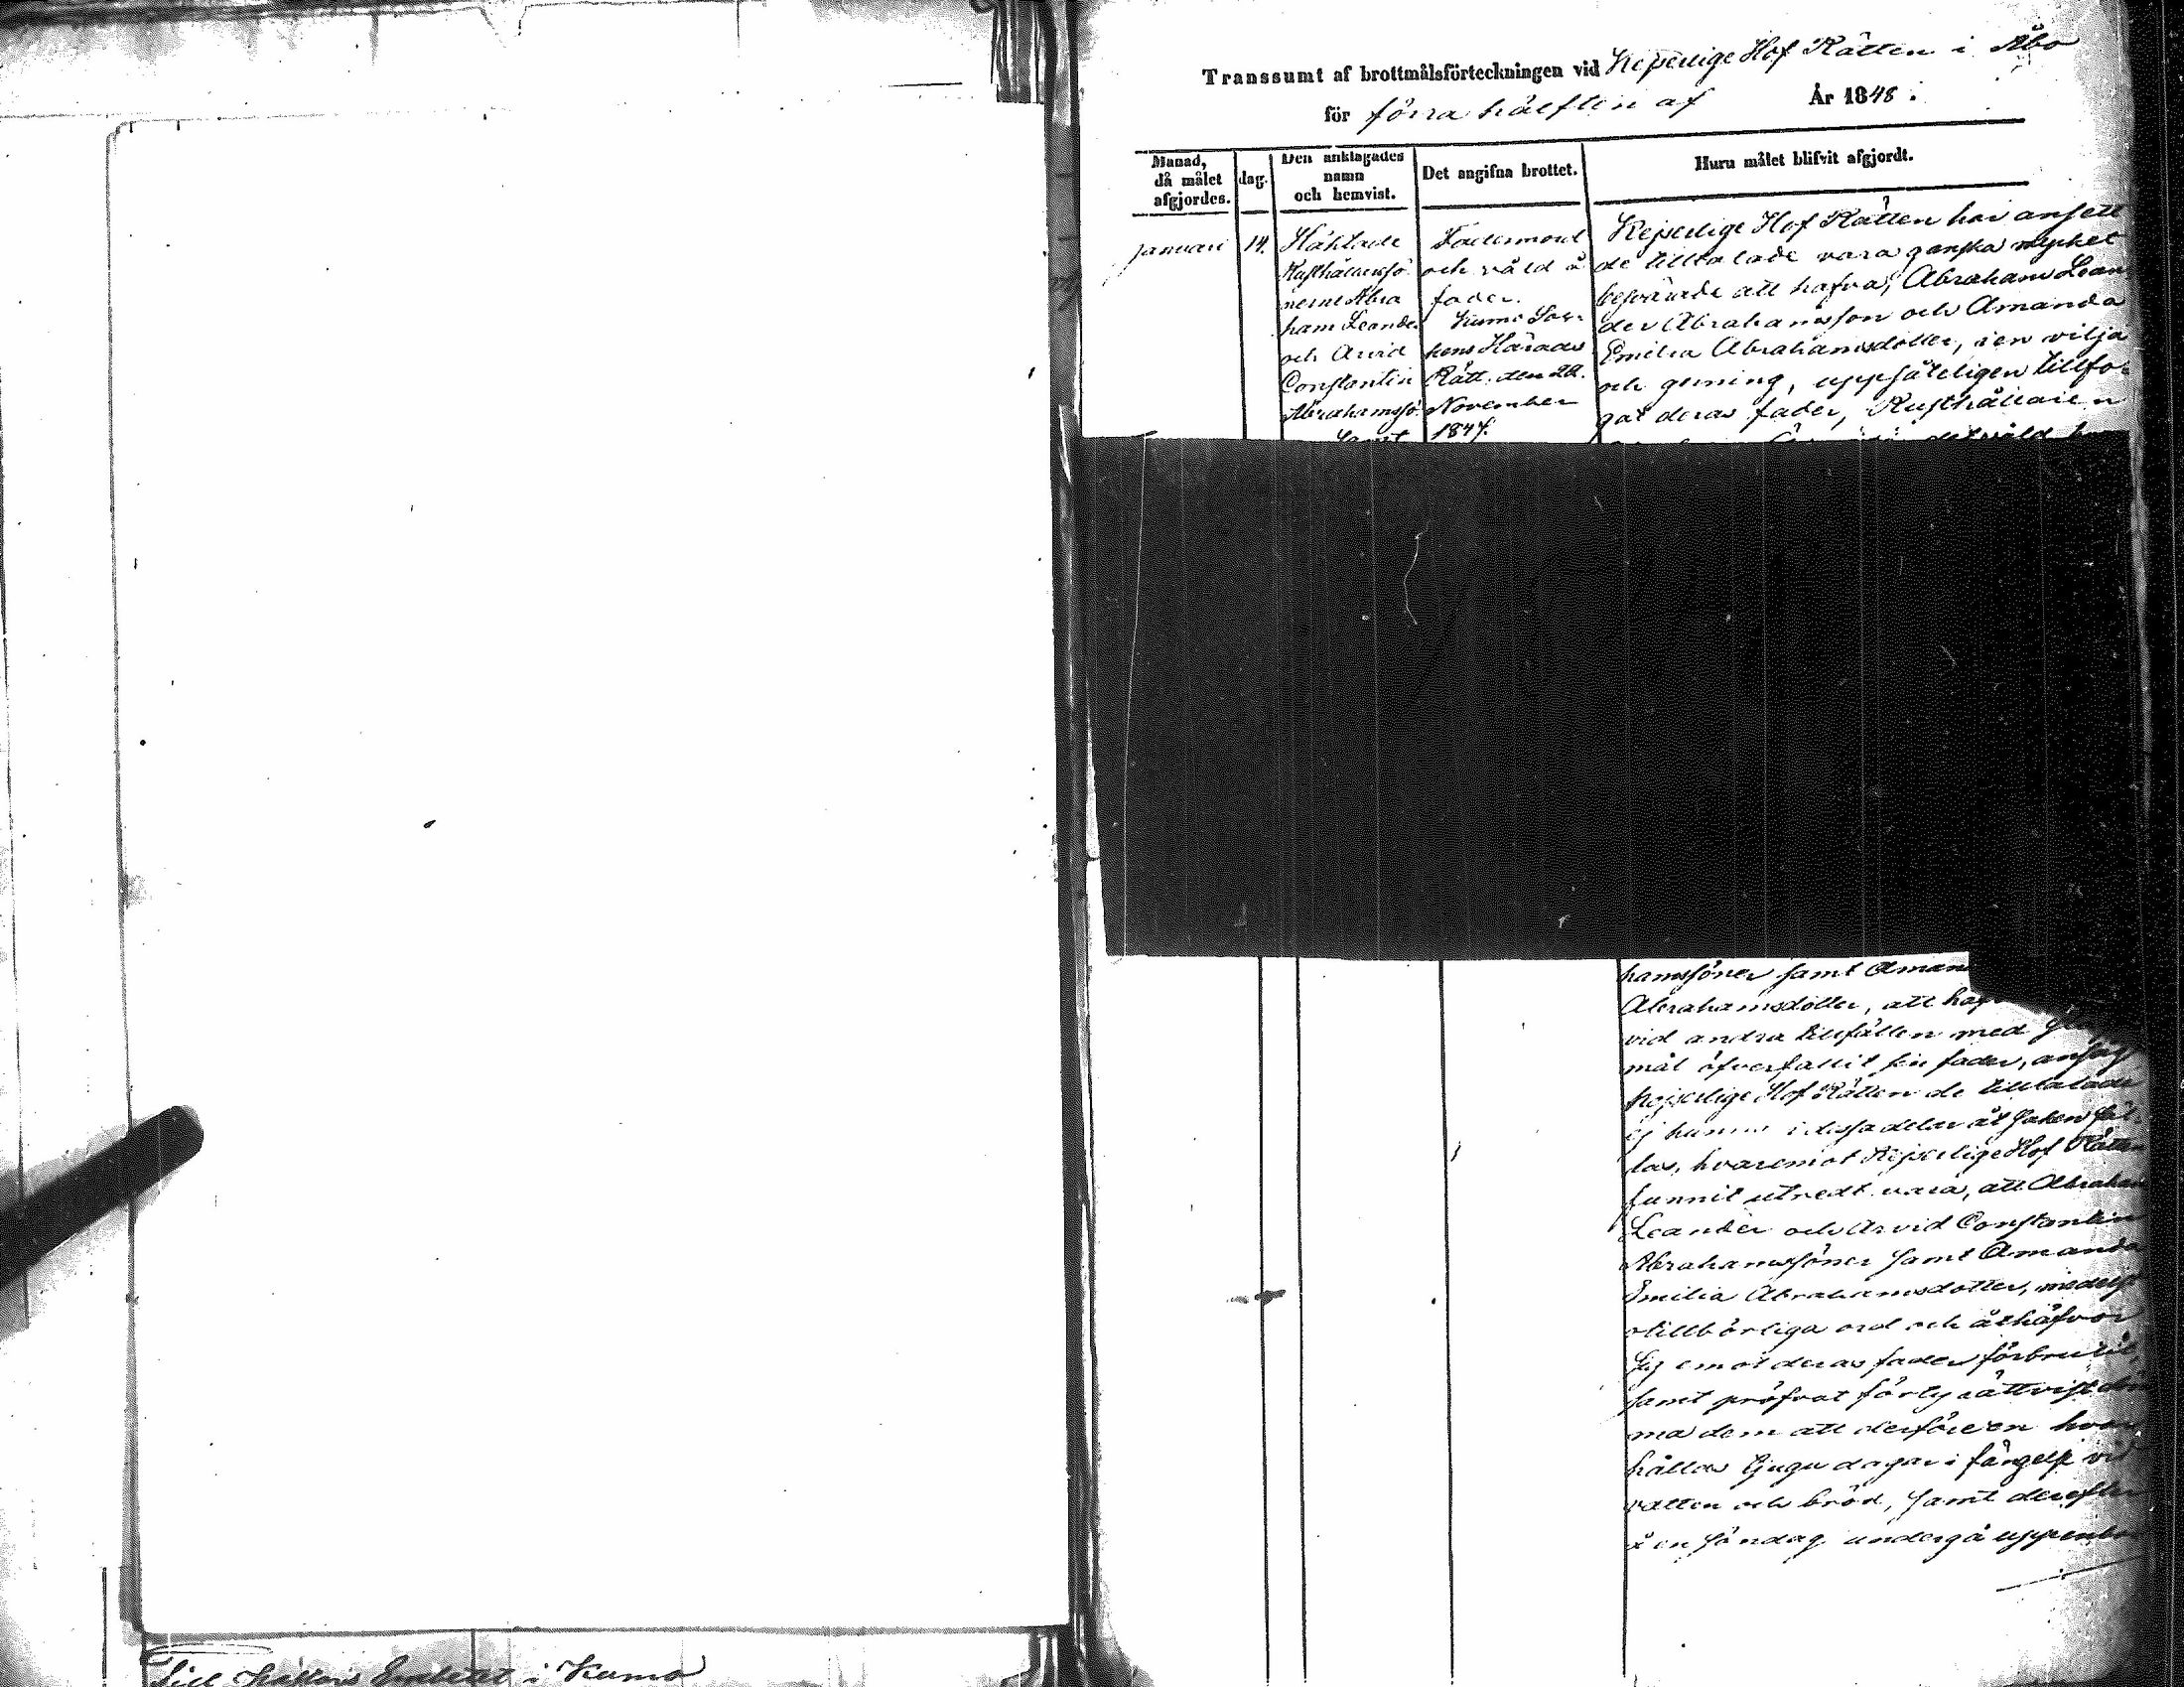 Till Pastors Embetet i Kumo
Transsumt af brottmålsförteckningen vid Kejserlige Hof Rätten i Åbo
för förra hälften af År 1848.
Månad, då målet afgjordes.
dag.
Den anklagades namn och hemvist.
Det angifna brottet.
Huru målet blifvit afgjordt.
Januari
14.
Häktade
Rusthållaresö
nerne Abra
ham Leander
och Arvid
Constantin
Abrahamssö
samt
Fadermord
och våld å
fader.
Kumo Soc-
kens Härads
Rätt den 22.
November
1847.
Kejserlige Hof Rätten har ansett
de tilltalade vara ganska mycket
besvärade att hafva, Abraham Lean
der Abrahamsson och Amanda
Emilia Abrahamsdotter, i en vilja
och gerning, uppsåteligen tillfo-
gat deras fader, Rusthållaren
det våld
hamssöner samt Aman
Abrahamsdotter, att haf
vid andra tillfällen med
mål öfverfallit sin fader, ansåg
Kejserlige Hof Rätten de tilltalade
ej kunna i dessa delar åt saken fäl
las, hvaremot Kejserlige Hof Rätten
funnit utredt vara, att Abraham
Leander och Arvid Constantin
Abrahamssöner samt Amanda
Emilia Abrahamsdotter, medelst
otillbörliga ord och åthäfvor
sig emot deras fader förbrutit,
samt pröfvat förty rättvist döm
ma dem att derföre en hvar
hållas tjugu dagar i fängelse vid
vatten och bröd, samt derefter
å en söndag undergå uppenba